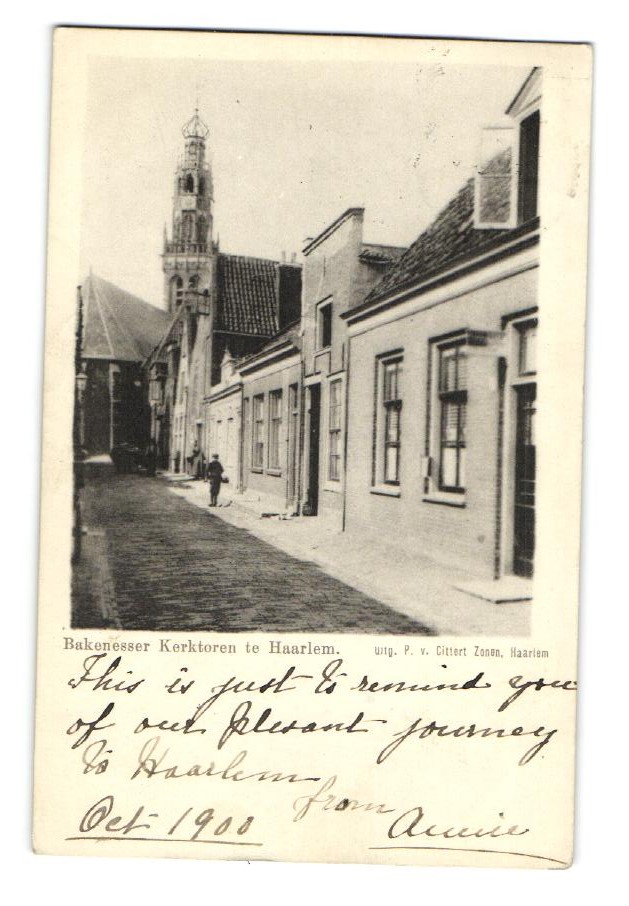 Bakenesser Kerktoren te Haarlem. Uitg. P. v. Cittert Zonen, Haarlem
This is just to remind you
of our plesant journey
to Haarlem
from
Oct 1900 Annie